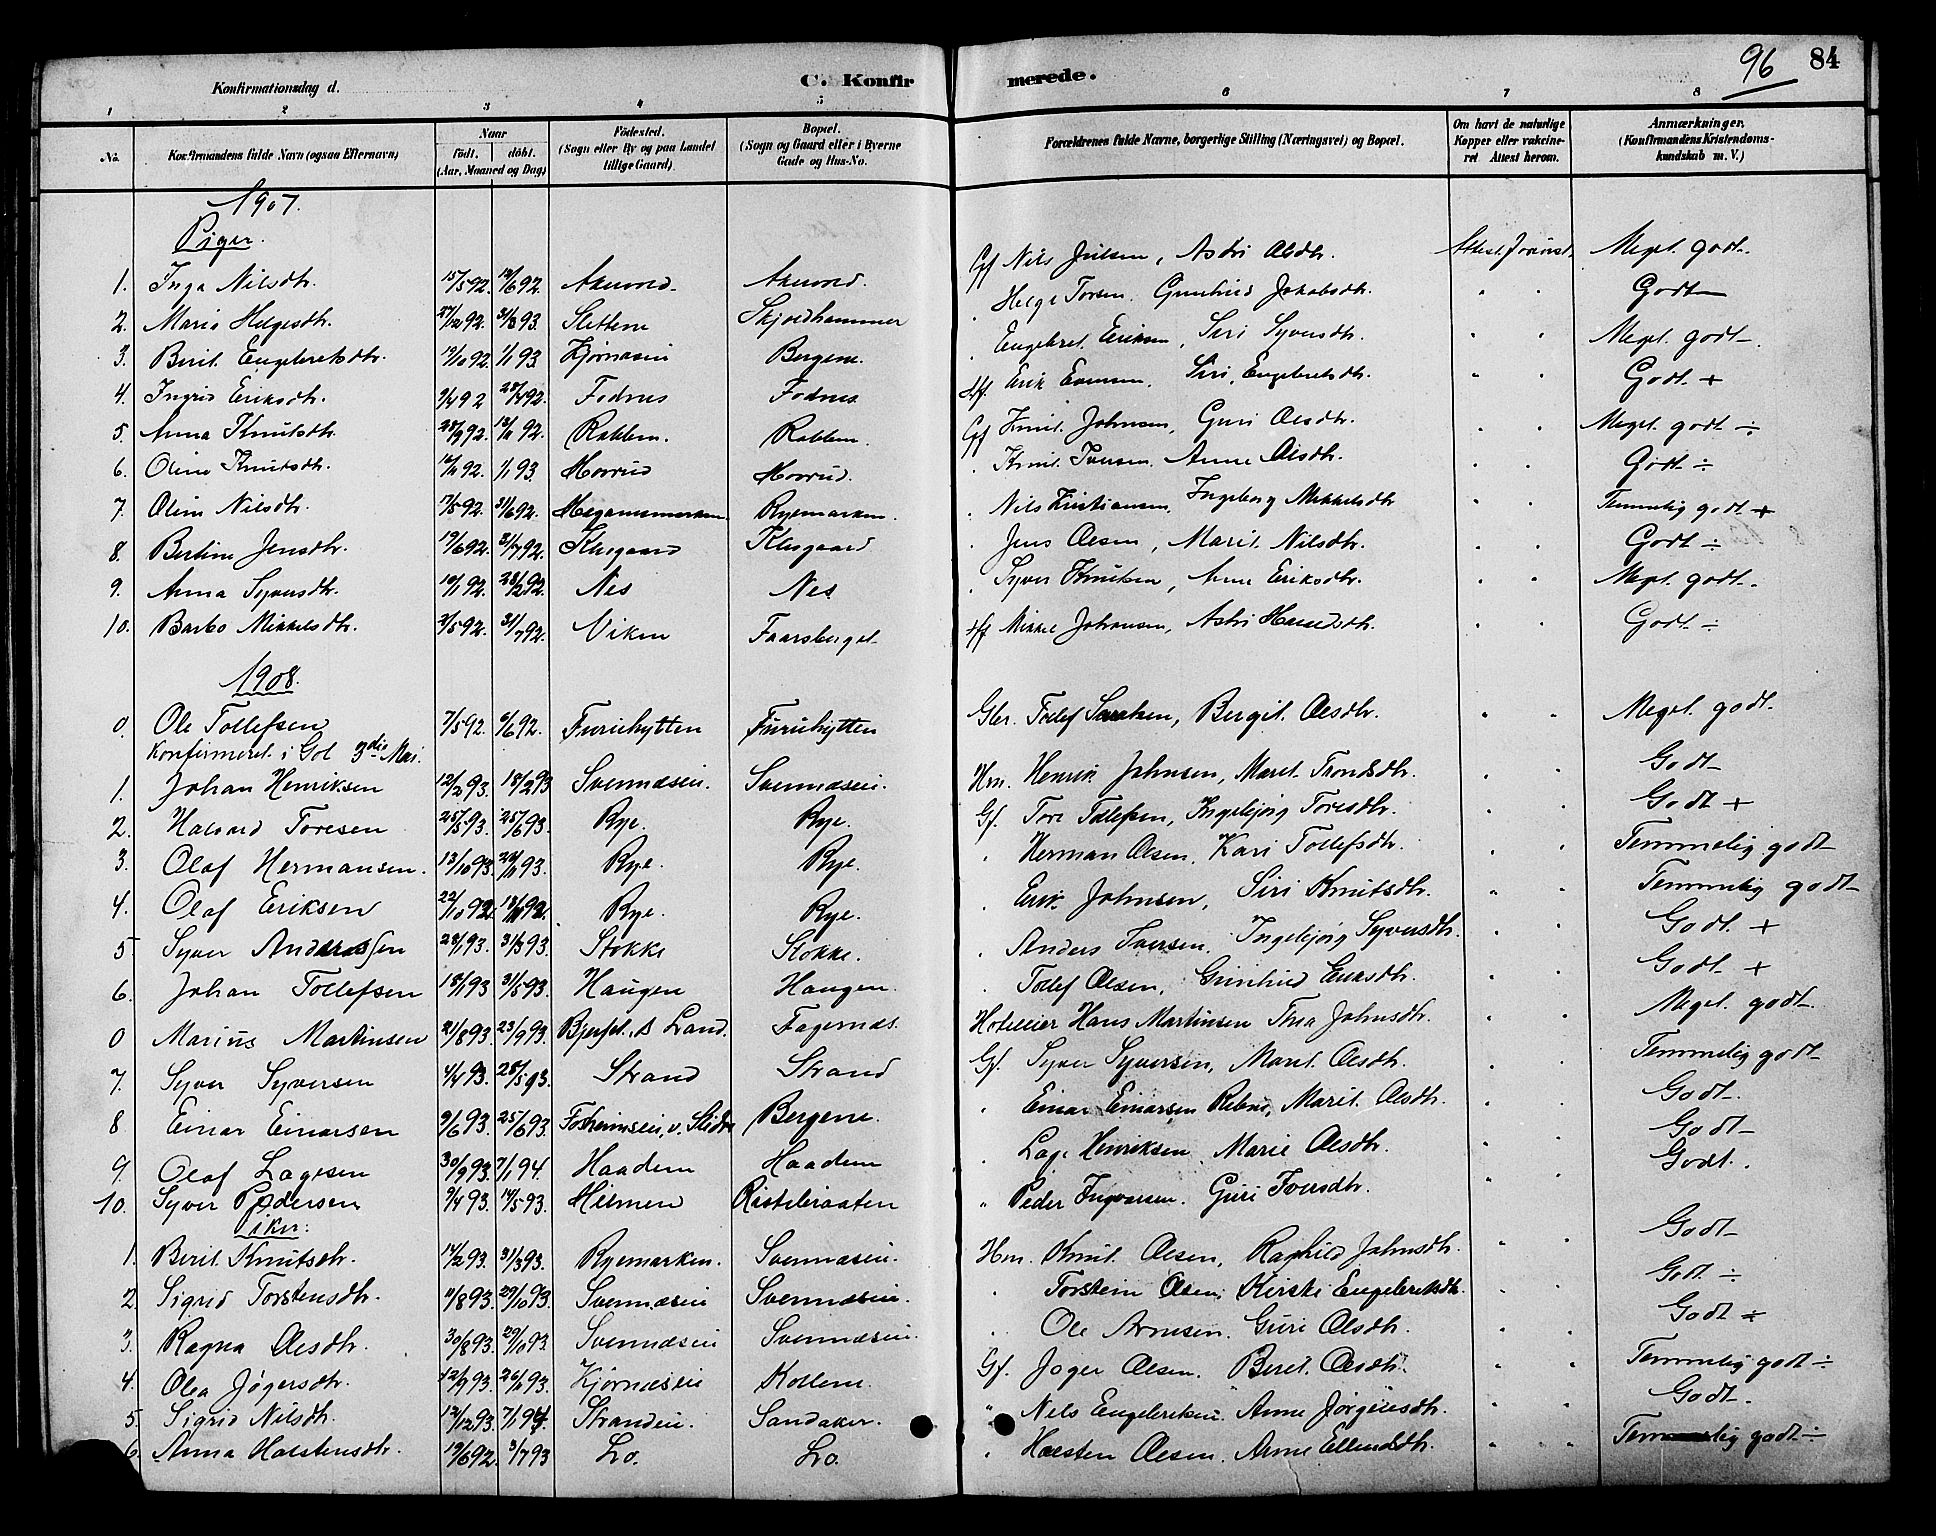 96 84
Konfirmationsdag d. C. Konfirmerede.
1 2 3 4 5 6 7 8
No. Konfirmandens fulde Navn (ogsaa Efternavn) Naar födt. döbt. (Aar, Maaned og Dag) Födested. (Sogn eller By og paa Landet tillige Gaard) Bopæl. (Sogn og Gaard eller i Byerne Gade og Hus-No. Forældrenes fulde Navne, borgerlige Stilling (Næringsvei) og Bopæl. Om havt de naturlige Kopper eller vakcineret Attest herom. Anmærkninger, (Konfirmandens Kristendomskundskab m. V.)
1907
Piger.
1. Inga Nilsdtr. 15/5 92. 12/6 92. Gf Nils Julsen, Astri Olsdtr. Meget godt.
2. Maria Helgesdtr. 27/12 92. 31/3 93. Slettene Skjoldhammer Helge Torsen. Gunhild Jakobsdtr. " " Godt
3. Berit Engebretsdtr. 19/10 92. 1/1 93 Kjørnæsein Bergene. Engebret Eriksen, Siri Syversdtr. " " Meget godt.
4. Ingrid Eriksdtr. 9/4 92 Fodnes Fodnes Hf. Erik Siri Engebretsdtr. " " Godt +
5. Anna Knutsdtr. Rabben. Rabben. Gf Knut Johnsen, Guri Olsdtr. " " Meget godt ÷
6. Oline Knutsdtr. 1/1 93 Hovrud Hovrud. Knut Iversen. Anne Olsdtr. " " Godt ÷
7. Oline Nilsdtr. 17/5 92. Ryemarken. Nils Kristiansen, Ingeborg Mikkelsdtr " " Temmelig godt +
8. Bertine Jensdtr. 19/6 92. 31/7 92. Klosgaard Klosgaard Jens Olsen, Marit Nilsdtr. " " Godt ÷
9. Anna Syversdtr. 10/1 92. 28/2 92. Nes Nes Syver Knutsen, Anne Eriksdtr. " " Meget godt.
10. Barbo Mikkelsdtr. 2/5 92. 31/7 92. Viken Faarsberget Hf Mikkel Johansen, Astri " " Godt ÷
1908.
0. Ole Tollefsen 7/5 92. 6/6 92. Furuhytten Furuhytten Gbr. Tollef Bergit Olsdtr. " " Meget godt.
Konfirmeret i Gol 3die Mai.
1. Johan Henriksen 12/2 93. 18/2 93 Svennæsein. Svennæsein. Hm. Henrik Johnsen, Marit Trondsdtr. " " Godt
2. Halvard Toresen 25/5 93. 25/6 93. Rye. Rye. Gf. Tore Tollefsen, Ingebjørg Toresdtr. " " Godt +
3. Olaf Hermansen. 13/10 93. Rye. Rye. " Herman Olsen. Kari Tollefsdtr. " " Temmelig godt
4. Olaf Eriksen 22/10 92. Rye. Rye. " Erik Johnsen, Siri Knutsdtr. " " Temmelig godt
5. Syver Anderssen 31/3 93. Stokke Stokke. " Anders Iversen, Ingebjørg Syversdtr. " " Godt +
6. Johan Tollefsen 18/1 93 31/5 93. Haugen Haugen. " Tollef Olsen, Gunhild Eriksdtr. " " Godt +
0 Marius Martinsen 21/8 93. 23/9 93. Land. Fagernæs. Hotelleier Hans Martinsen Thea Johnsdtr. " " Meget godt
7. Syver Syversen 4/4 93. 28/5 93. Strand Strand Gf. Syver Syversen, Marit Olsdtr. " " Temmelig godt
8 Einar Einarsen 9/6 93. 25/6 93. Fosheimsein, v. Slidre Bergene. " Einar Einarsen Rebne, Marit Olsdtr. " " Godt.
9. Olaf Lagesen 30/9 93. 7/1 94. Haadem Haadem " Lage Henriksen Marie Olsdtr. " " Godt
10. Syver Pedersen 9/4 93. 14/5 93. Hilmen Ristebraaten " Peder Ingvarsen. Guri Iversdtr. " " Godt.
Piker:
1. Berit Knutsdtr. 14/2 93. 31/3 93. Ryemarken. Svennæsein. Hm. Knut Olsen, Raghild Johnsdtr. " " Godt
2. Sigrid Torstensdtr. 11/8 93. 29/10 93. Svennæsein Svennæsein. " Torstein Olsen, Kirsti Engebretsdtr. " Godt ÷
3. Ragna Olsdtr. 30/8 93. 29/10 93. Svennæsein Svennæsein. " Ole Arnesen. Guri Olsdtr. " " Godt ÷
4. Olea Jøgersdtr. Kjørnæsein Kollene. Gf. Jøger Olsen. Berit Olsdtr. " " Temmelig godt ÷
5. Sigrid Nilsdtr. 12/12 93. 7/1 94. Strandein. Sandaker. " Nils Engebretsen. Anne Jørgensdtr. " " Godt.
6. Anna Halstensdtr. 19/6 92. 3/7 93 Lo. Lo. " Halsten Olsen. Anne Ellendsdtr. " " Temmelig godt ÷